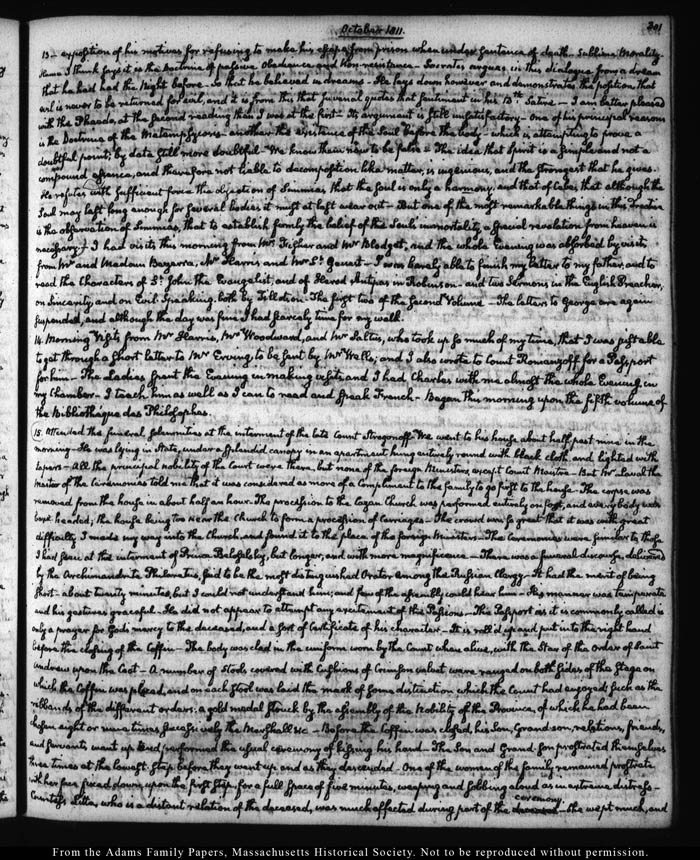 October 1811.
301
13 — exposition of his motives for refusing to make his escape from prison when under sentence of death. Sublime Morality.
Hume I think says it is the Doctrine of passive Obedience and Non-resistance — Socrates argues in this dialogue from a dream
that he had had the Night before — So that he believed in dreams — He lays down however and demonstrates the position, that
evil is never to be returned for evil, and it is from this that Juvenal quotes that sentiment in his 13th Satire — I am better pleased
with the Phaedo, at the Second reading than I was at the first — Its argument is still unsatisfactory — One of his principal reasons
is the Doctrine of the Metempsycosis — another the existence of the Soul before the body — which is attempting to prove a
doubtful point, by data still more doubtful — We know them now to be false — The idea that Spirit is a simple and not a
compound essence, and therefore not liable to decomposition like matter, is ingenious, and the strongest that he gives.
He refutes with sufficient force the objection of Simmias that the Soul is only a harmony, and that of Cebes that although the
Soul may last long enough for several bodies it must at last wear out — But one of the most remarkable things in this Treatise
is the observation of Simmias, that to establish firmly the belief of the Soul's immortality, a special revelation from heaven is
necessary. I had visits this morning from Mr. Fisher and Mr Blodget, and the whole Evening was absorbed by visits
from Mr and Madam Bezerra, Mr Harris and Mr St. Genest — I was barely able to finish my letter to my father, and to
read the Characters of St. John the Evangelist, and of Herod Antipas in Robinson — and two Sermons in the English Preacher,
on Sincerity, and on Evil Speaking, both by Tillotson — The first two of the Second Volume — The letters to George are again
suspended, and although the day was fine I had scarcely time for my walk.
14. Morning Visits from Mr Harris, Mr Woodward, and Mr Saltus, who took up so much of my time, that I was just able
to get through a short letter to Mr Erving, to be sent by Mr Wells; and I also wrote to Count Romanzoff for a Passport
for him — The Ladies spent the Evening in making visits, and I had Charles with me almost the whole Evening, in
my Chamber — I teach him as well as I can to read and speak French — Began this morning upon the fifth volume of
the Bibliothéque des Philosophes.
15. Attended the funeral solemnities at the interment of the late Count Strogonoff — We went to his house about half past nine in the
morning — He was lying in State, under a splendid canopy in an apartment hung entirely round with black cloth and lighted with
tapers — All the principal nobility of the Court were there, but none of the foreign Ministers except Count Maistre — But Mr Laval the
Master of the Ceremonies told me that it was considered as more of a Compliment to the family to go first to the house — The corpse was
removed from the house in about half an hour. The procession to the Cazan Church was performed entirely on foot, and every body was
bare headed; the house being too near the Church to form a procession of Carriages — The crowd was so great that it was with great
difficulty I made my way into the Church, and found it to the place of the foreign Ministers — The Ceremonies were similar to those
I had seen at the interment of Prince Beloselsky, but longer, and with more magnificence — There was a funeral discourse, delivered
by the Archimandrite Philaretes, said to be the most distinguished Orator among the Russian Clergy — It had the merit of being
short — about twenty minutes, but I could not understand him; and few of the assembly could hear him — His manner was temperate
and his gestures graceful — He did not appear to attempt any excitement of the Passions — The Passport as it is commonly called is
only a prayer for God's mercy to the deceased, and a sort of Certificate of his character — It is roll'd up and put into the right hand
before the closing of the Coffin — The body was clad in the uniform worn by the Count when alive, with the Star of the Order of Saint
Andrew upon the Coat — A number of Stools covered with Cushions of Crimson velvet were ranged on both sides of the Stage on
which the Coffin was placed, and on each stool was laid the mark of some distinction which the Count had enjoyed; such as the
ribbands of the different orders; a gold medal struck by the assembly of the Nobility of the Province, of which he had been
chosen eight or nine times successively the Marshall &c — Before the Coffin was closed, his Son, Grand-son, relations, friends,
and servants went up and performed the usual ceremony of kissing his hand — The Son and Grand-Son prostrated themselves
three times at the lowest step, before they went up and as they descended — One of the women of the family remained prostrate
with her face fixed down, upon the first step, for a full space of five minutes, weeping and sobbing aloud as in extreme distress —
Countess Litta, who is a distant relation of the deceased, was much affected during part of the ceremony. She wept much, and
From the Adams Family Papers, Massachusetts Historical Society. Not to be reproduced without permission.